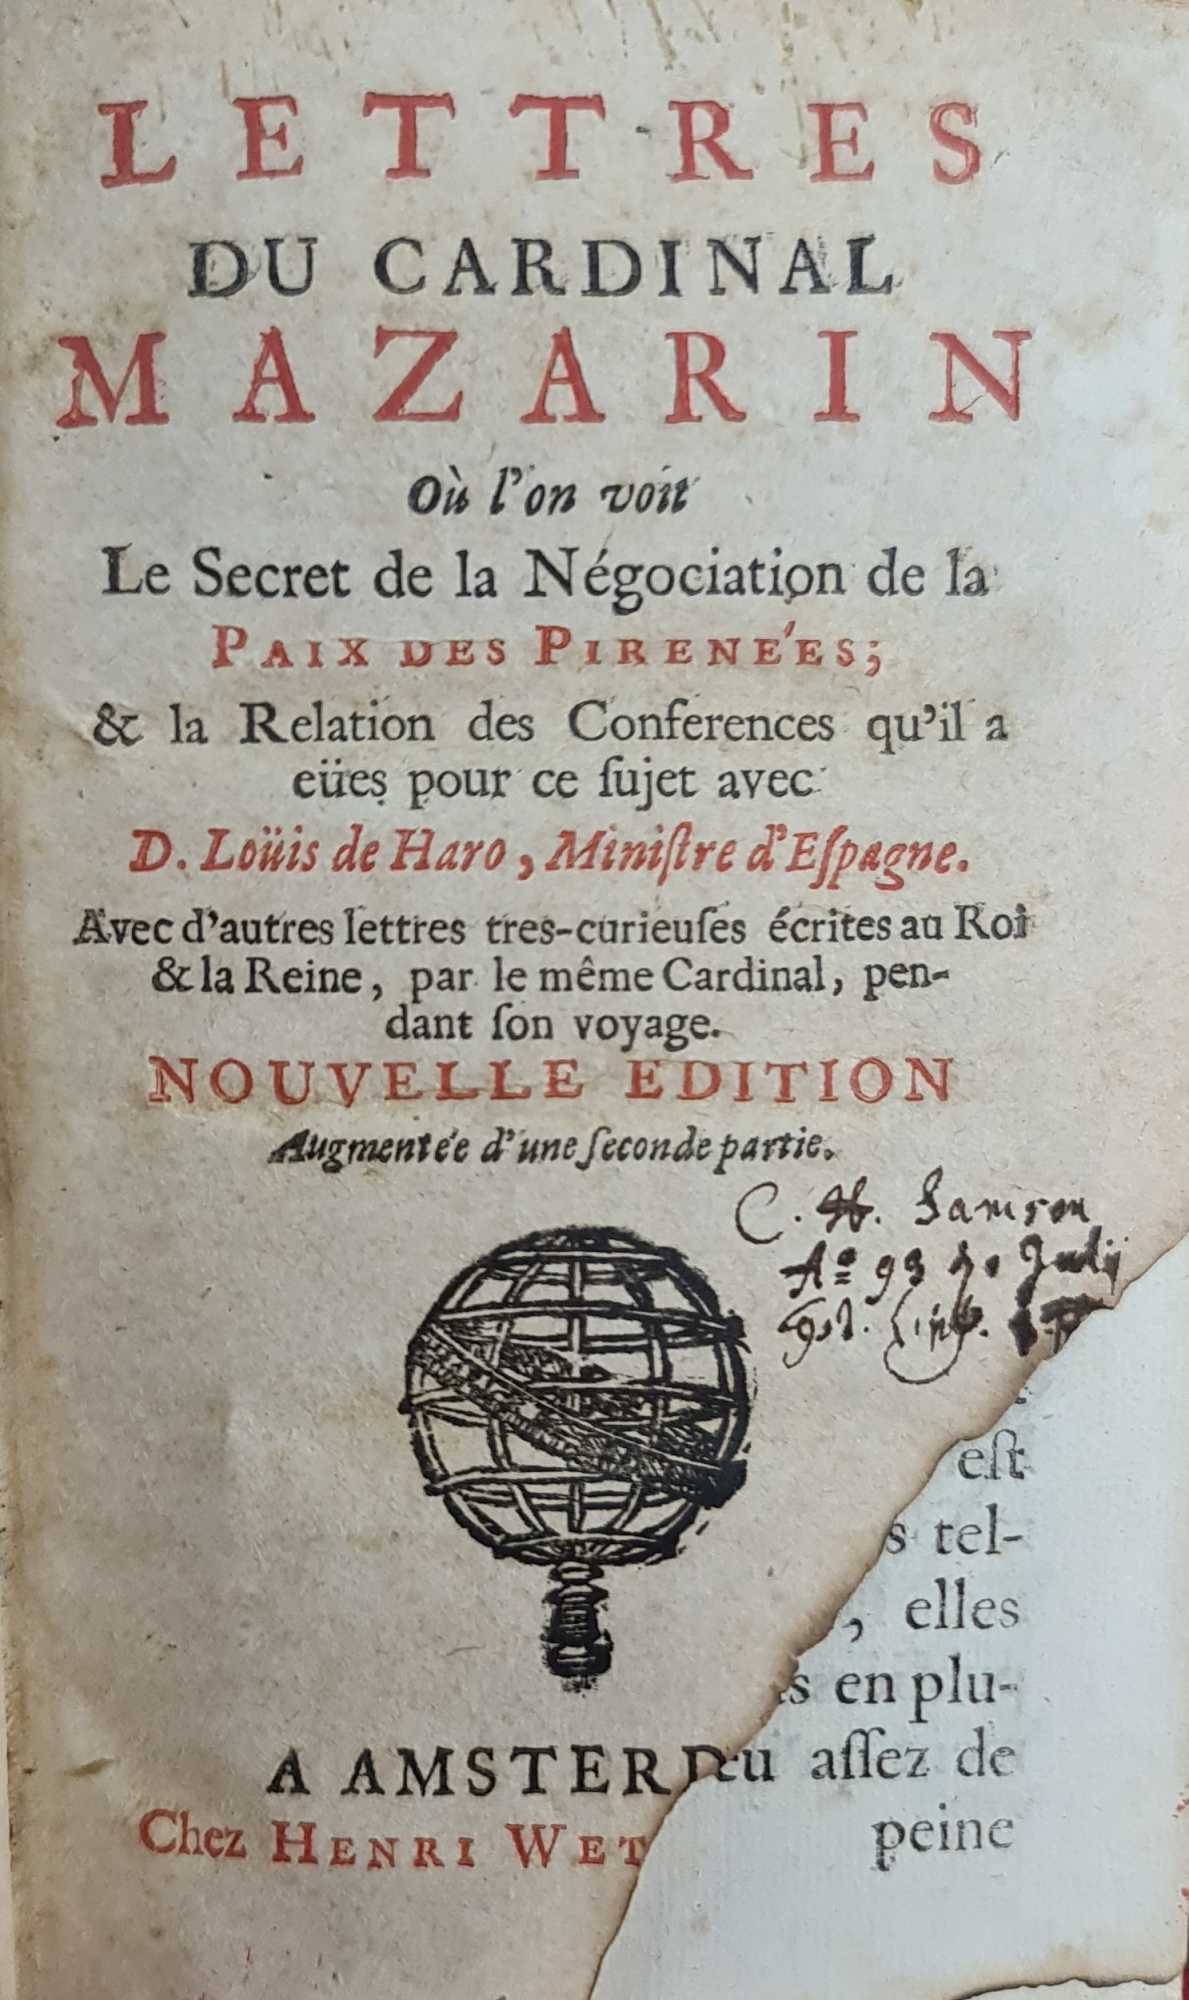 LETTRES
DU CARDINAL
MAZARIN
Où l'on voit
Le Secret de la Négociation de la
PAIX DES PIRENE'ES;
& la Relation des Conferences qu'il a
eües pour ce ſujet avec
D. Loüis de Haro, Miniſtre d'Eſpagne.
Avec d'autres lettres tres-curieuſes écrites au Roi
& la Reine, par le même Cardinal, pen-
dant ſon voyage.
NOUVELLE EDITION
Augmentée d'une ſeconde partie.
C. H. Samson
Aº 93 Julij
eſt
s tel-
, elles
s en plu-
A AMSTERD
eu aſſez de
Chez HENRI WET
peine